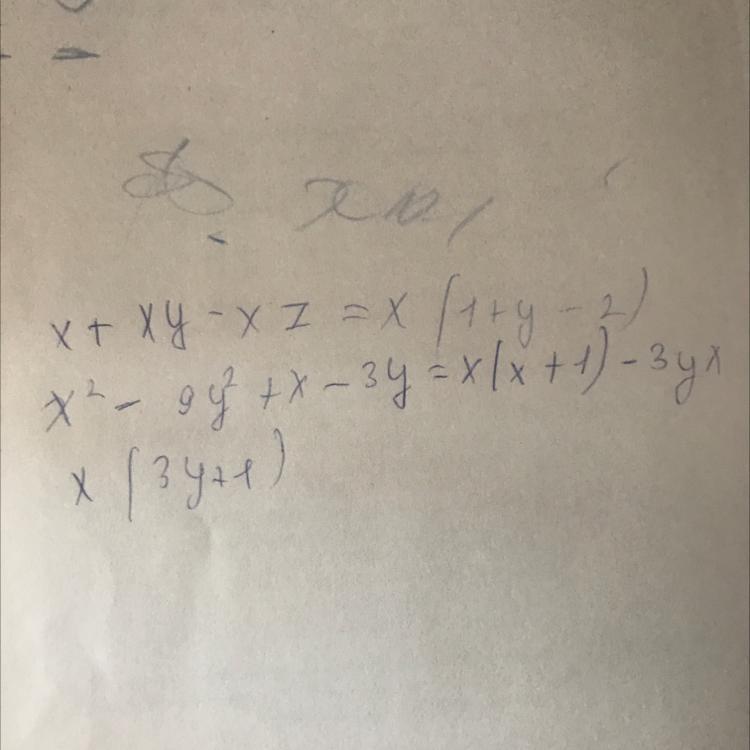 x + xy - xz = x (1 + y - z)
x² - 9y² + x - 3y = x(x + 1) - 3yx
x (3y + 1)